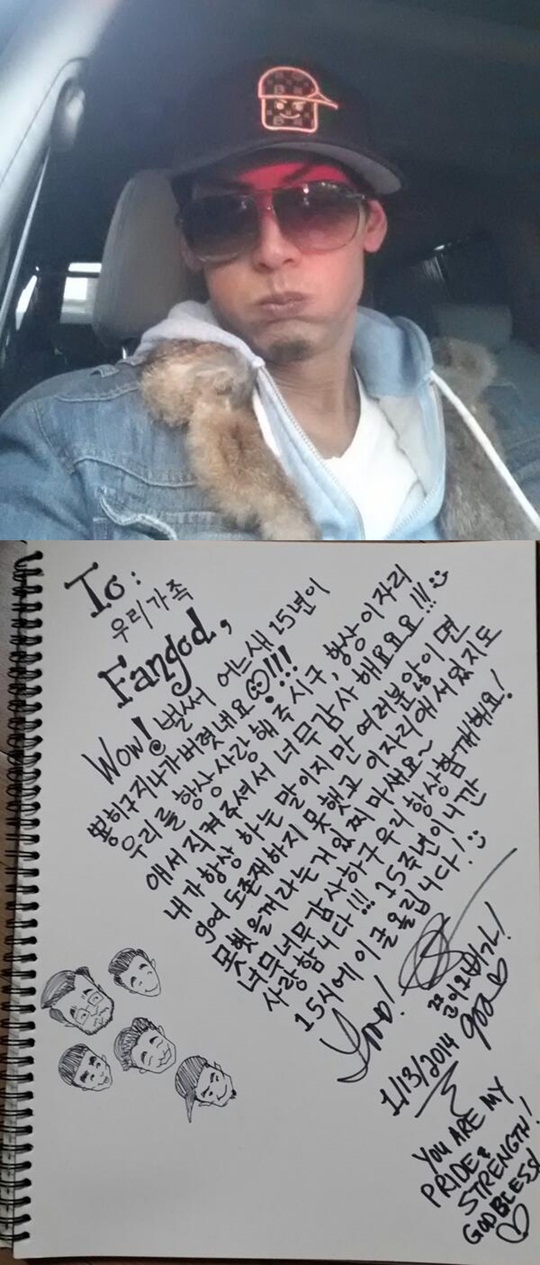 To:
우리가족
Fangod,
Wow! 벌써 어느새 15년이
뿅히구지나가버렸내요 !!!
우리를 항상 사랑해주시구, 항상 이자리
애서 직켜주셔서 너무감사해요요요!!!
내가항상 하는 말이지만 여러분않이면
god 도존재하지 못했고 이자리애서있지도
못했을꺼라는거잊찌마새요~
너무너무감사하구 우리 항상함개해요!
사랑합니다!!! 15주년이니깐
15시에 이글올립니다!
god
1/13/2014
YOU ARE MY
PRIDE &
STRENGTH!
GOD BLESS!